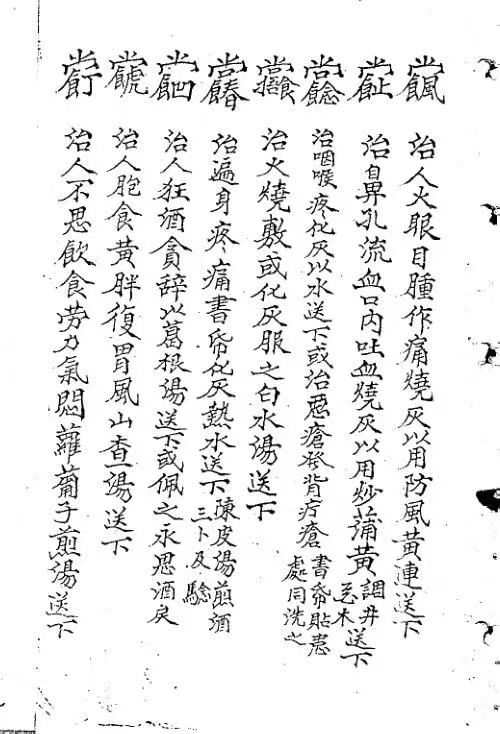 治人火眼目腫作痛燒灰以用防風黃連送下
治鼻孔流血口內吐血燒灰以用炒蒲黃調井送下
治咽喉疼化灰以水送下或治惡瘡發背疔瘡書帋貼患處同洗之
治火燒敷或化灰服之白水湯送下
治遍身疼痛書帋化灰熱水送下陳皮湯煎酒三卜及驗
治人狂酒貪辞以葛根湯送下或佩之永思酒戾
治人胞食黃胖復胃風山查湯送下
治人不思飲食勞力氣悶蘿蔔子煎湯送下